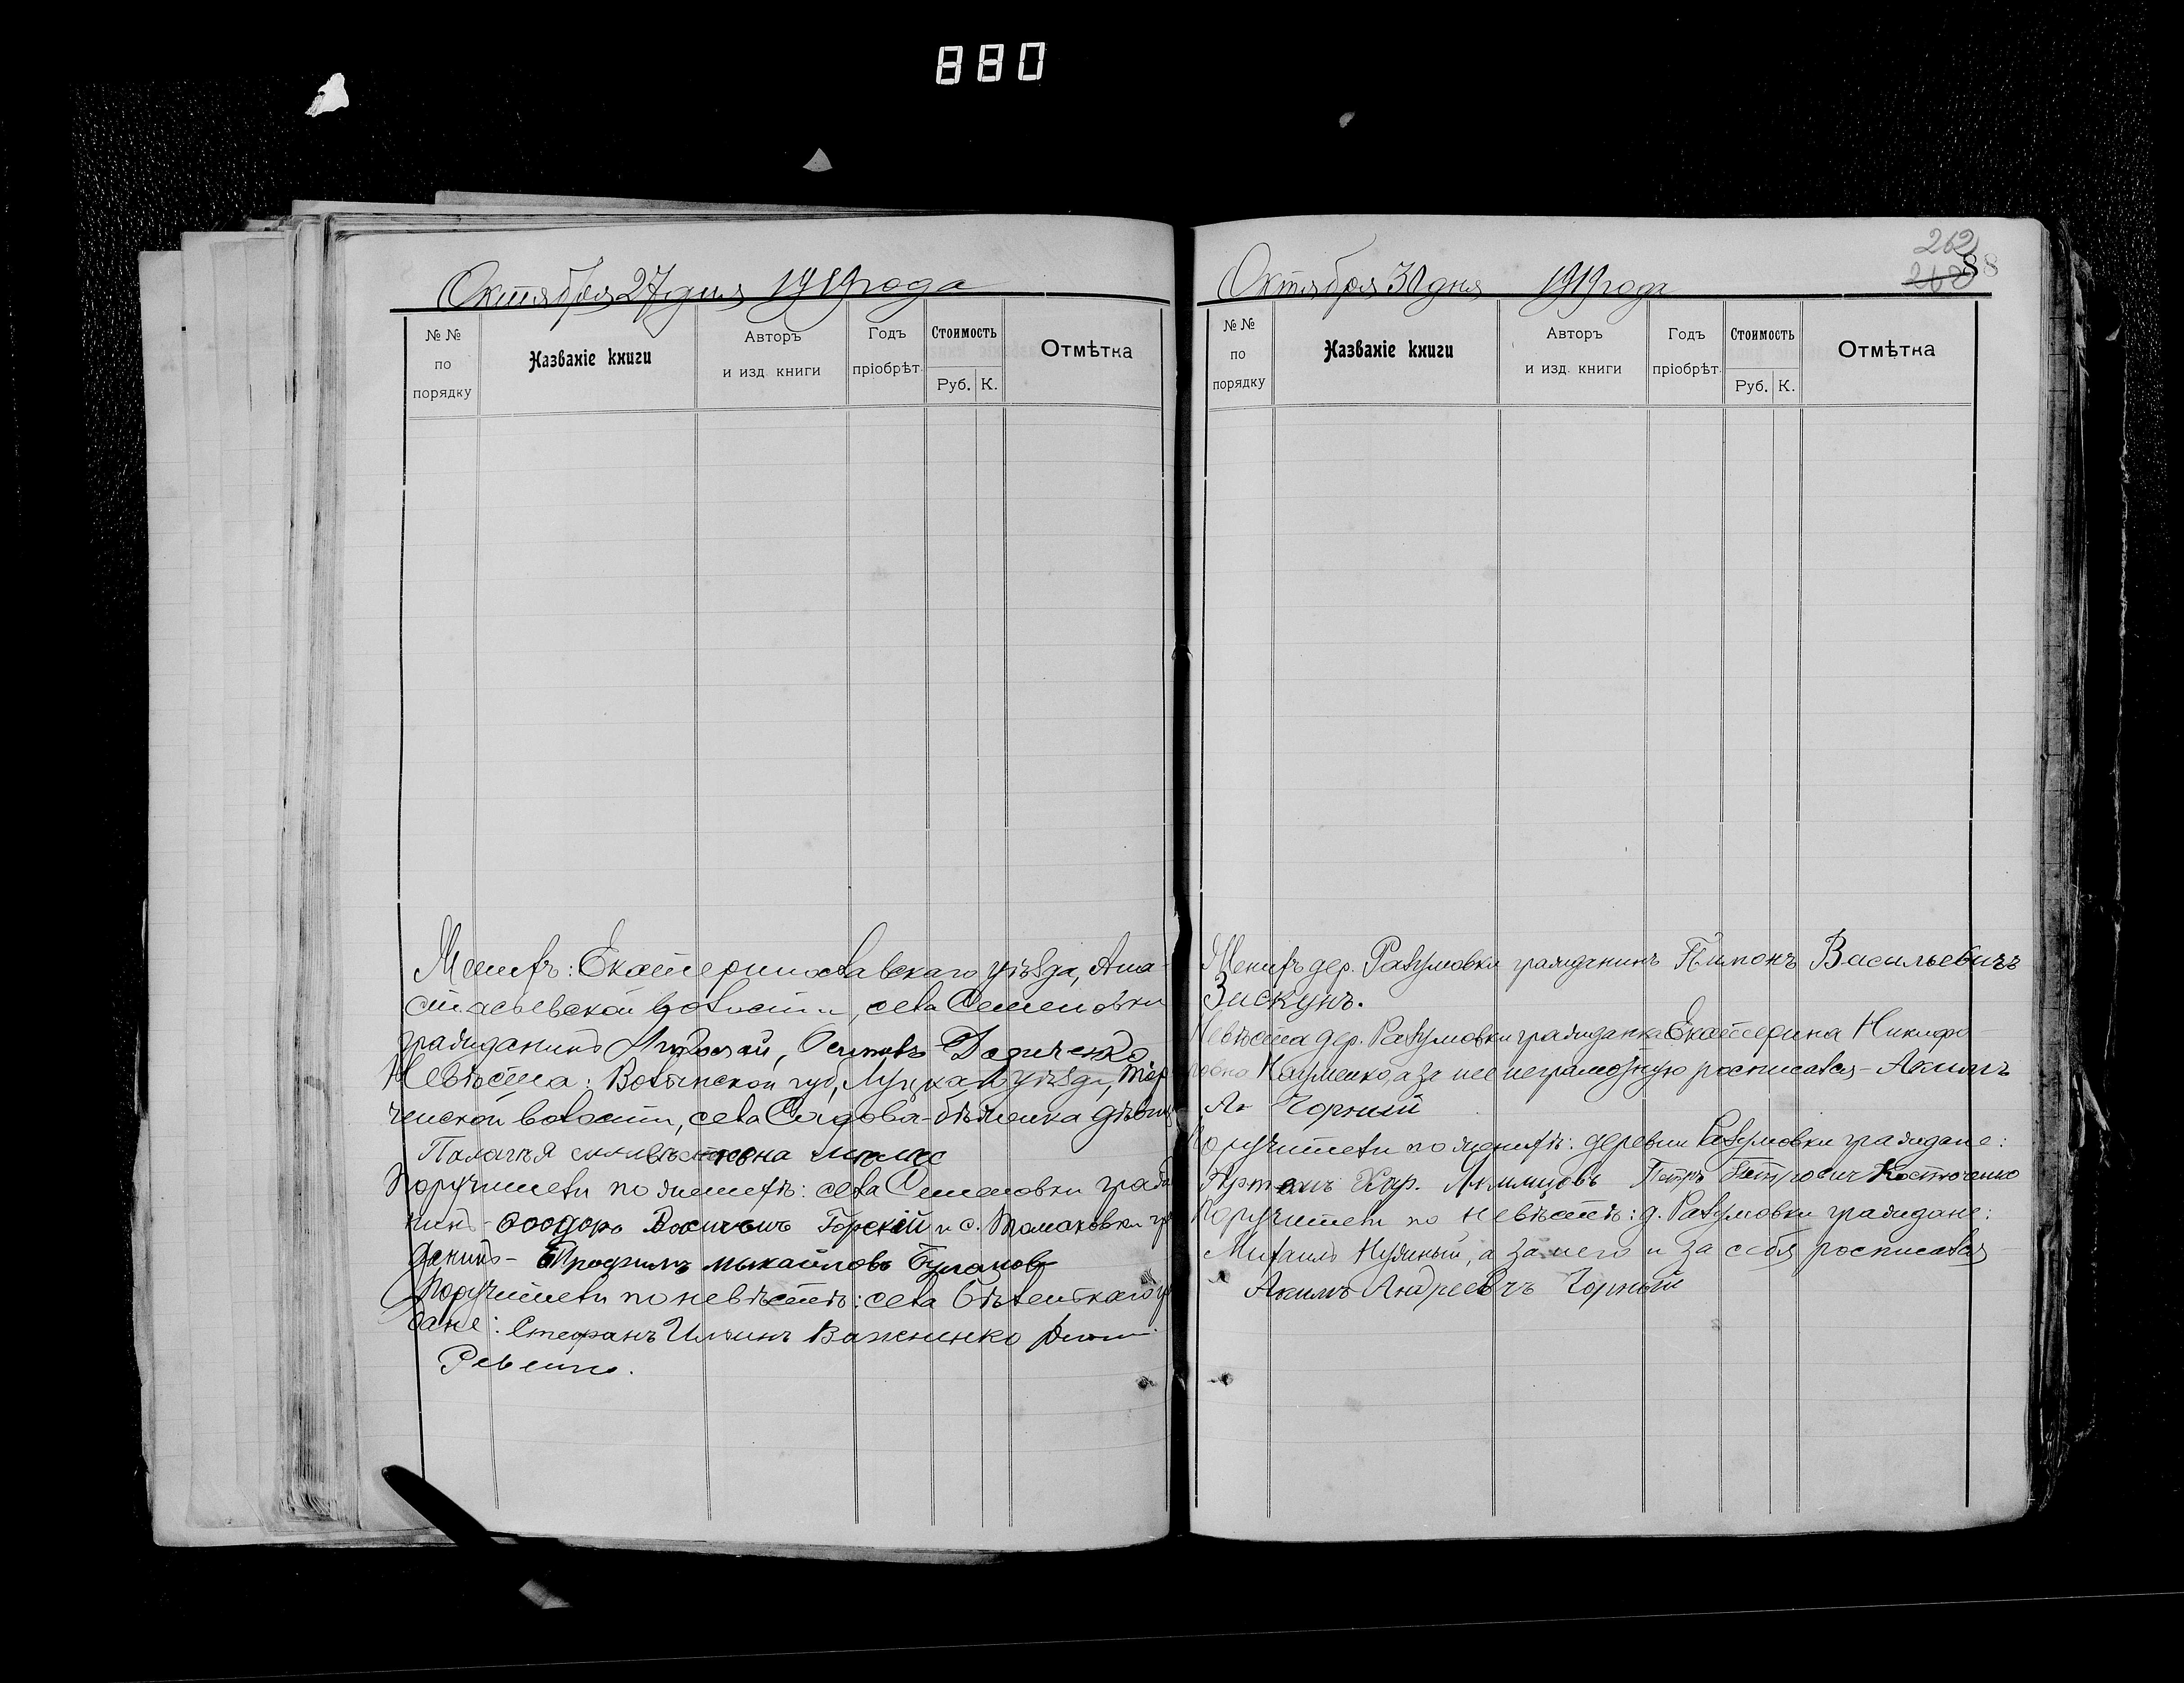 880
Октября 27 дня 1919 года
№ №
по
порядку
Названіе книги
Авторъ
и изд. книги
Годъ
пріобрѣт.
Стоимость
Руб. К.
Отмѣтка
Женихъ: Екатеринославскаго уѣзда, Ана-
стасьевской волости, села Семеновки
гражданинъ Осиповъ
Невѣста: Волынской губ., Луцкаго уѣзда,
ченской волости, села
Палагѣя
Поручители по женихѣ: села Семеновки гражда
нинъ - Ѳеодоръ Горскій и с. Томаковки гр
данинъ - Трофимъ Михайловъ
Поручители по невѣстѣ: села
дане: Стефанъ Ильинъ Важненко
262
268
88
Октября 30 дня 1919 года
№ №
по
порядку
Названіе книги
Авторъ
и изд. книги
Годъ
пріобрѣт.
Стоимость
Руб. К.
Отмѣтка
Женихъ дер. Разумовки гражданинъ Васильевичъ
Зискунъ.
Невѣста дер. Разумовки гражданка Екатерина Никифо-
ровна Науменко, а за нее неграмотную росписался - Акимъ
Ан Чорный
Поручители по женихѣ: деревни Разумовки граждане:
Артемъ Петръ Петрович Костюченко
Поручители по невѣстѣ: д. Разумовки граждане:
Михаилъ Нужный, а за него и за себя росписался
Акимъ Андреевичъ Чорный